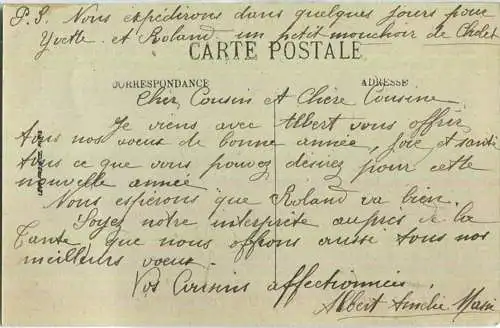 P.S. Nous expédirons dans quelques jours pour
Yvette et Roland un petit mouchoir de Cholet
CARTE POSTALE
CORRESPONDANCE
ADRESSE
Cher Cousin et Chère Cousine
Je viens avec Albert vous offrir
tous nos voeux de bonne année, joie et santé
tous ce que vous pouvez désirez pour cette
nouvelle année
Nous espérons que Roland va bien.
Soyez notre interprète auprès de la
Tante que nous offrons aussi tous nos
meilleurs voeux.
Vos Cousins affectionnés
Albert Amélie